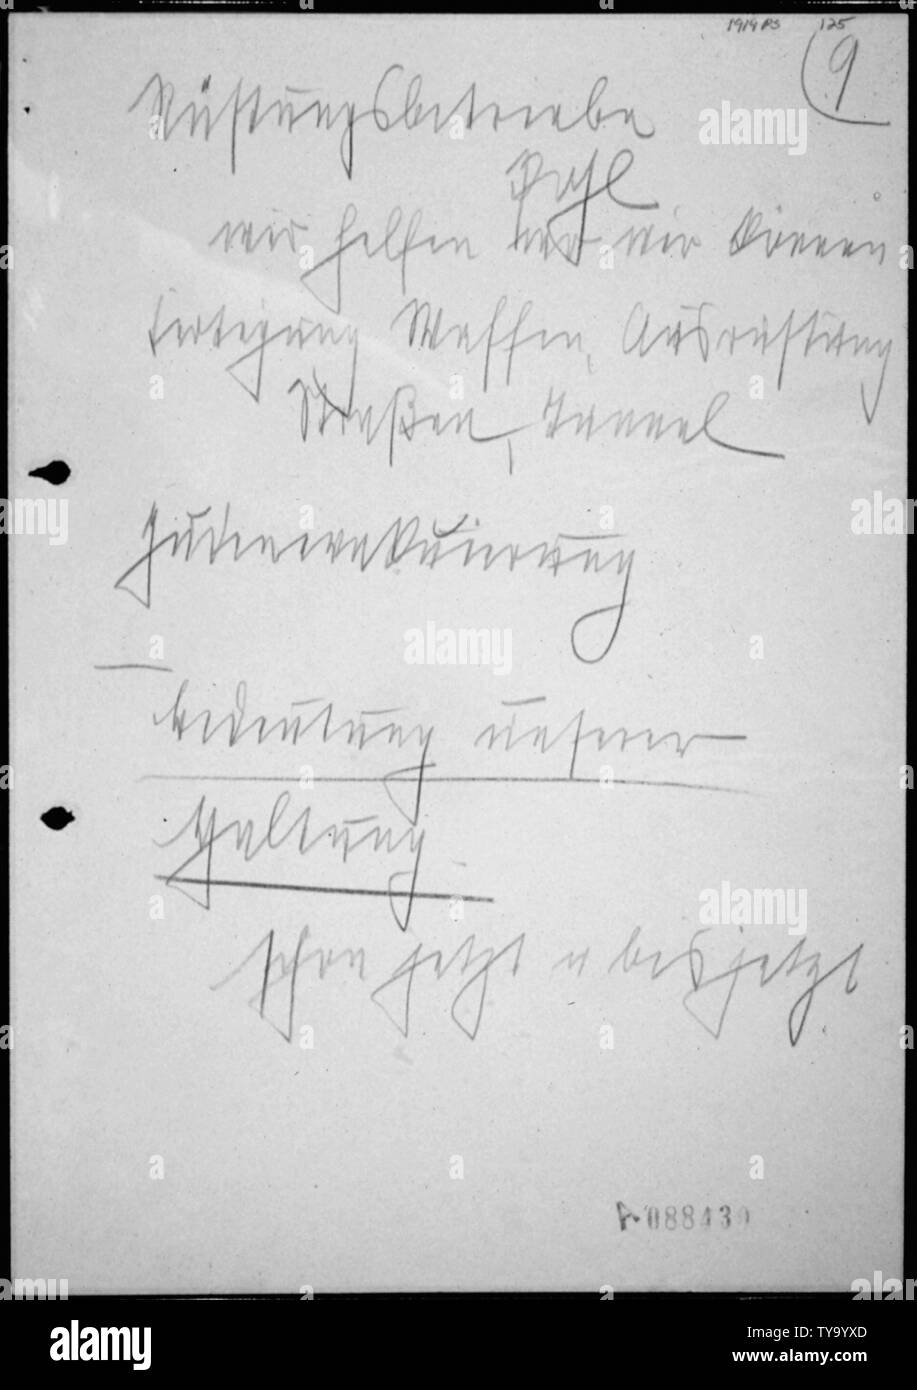 1919 PS 125
9
Rüstungsbetriebe
Pohl
wir helfen wo wir können
Fertigung Waffen, Ausrüstung
Straßen, Tunnel
Judenevakuierung
—
Bedeutung unserer
Haltung
schon jetzt u bis jetzt
A 088439
alamy
Image ID: TY9YXD
www.alamy.com